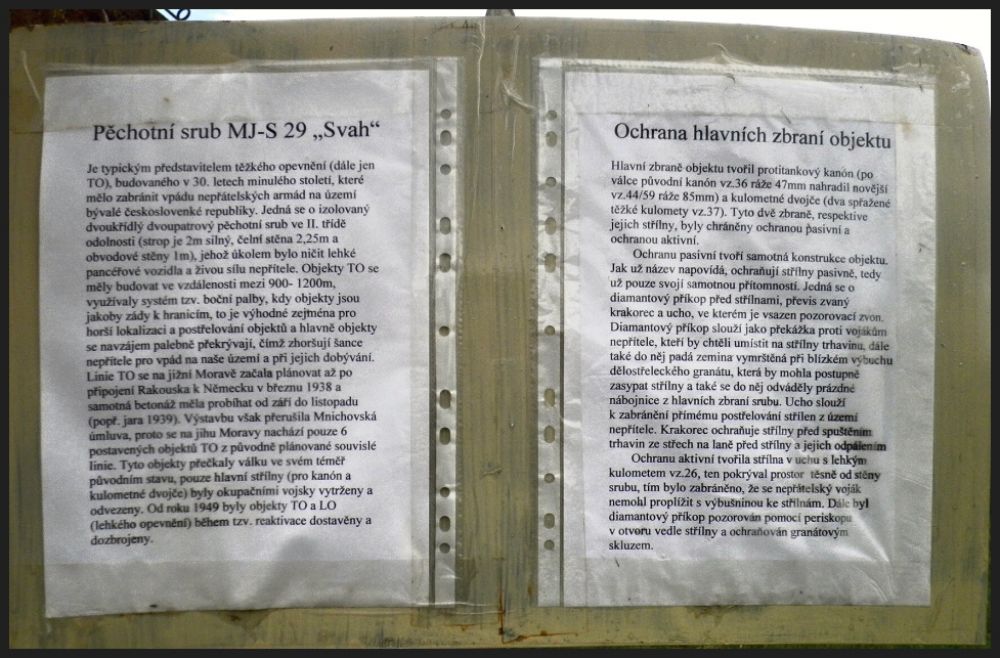 Pěchotní srub MJ-S 29 „Svah“
Je typickým představitelem těžkého opevnění (dále jen
TO), budovaného v 30. letech minulého století, které
mělo zabránit vpádu nepřátelských armád na území
bývalé československé republiky. Jedná se o izolovaný
dvoukřídlý dvoupatrový pěchotní srub ve II. třídě
odolnosti (strop je 2m silný, čelní stěna 2,25m a
obvodové stěny 1m), jehož úkolem bylo ničit lehké
pancéřové vozidla a živou sílu nepřítele. Objekty TO se
měly budovat ve vzdálenosti mezi 900- 1200m,
využívaly systém tzv. boční palby, kdy objekty jsou
jakoby zády k hranicím, to je výhodné zejména pro
horší lokalizaci a postřelování objektů a hlavně objekty
se navzájem palebně překrývají, čímž zhoršují šance
nepřítele pro vpád na naše území a při jejich dobývání.
Linie TO se na jižní Moravě začala plánovat až po
připojení Rakouska k Německu v březnu 1938 a
samotná betonáž měla probíhat od září do listopadu
(popř. jara 1939). Výstavbu však přerušila Mnichovská
úmluva, proto se na jihu Moravy nachází pouze 6
postavených objektů TO z původně plánované souvislé
linie. Tyto objekty přečkaly válku ve svém téměř
původním stavu, pouze hlavní střílny (pro kanón a
kulometné dvojče) byly okupačními vojsky vytrženy a
odvezeny. Od roku 1949 byly objekty TO a LO
(lehkého opevnění) během tzv. reaktivace dostavěny a
dozbrojeny.
Ochrana hlavních zbraní objektu
Hlavní zbraně objektu tvořil protitankový kanón (po
válce původní kanón vz.36 ráže 47mm nahradil novější
vz.44/59 ráže 85mm) a kulometné dvojče (dva spřažené
těžké kulomety vz.37). Tyto dvě zbraně, respektive
jejich střílny, byly chráněny ochranou pasivní a
ochranou aktivní.
Ochranu pasivní tvoří samotná konstrukce objektu.
Jak už název napovídá, ochraňují střílny pasivně, tedy
už pouze svojí samotnou přítomností. Jedná se o
diamantový příkop před střílnami, převis zvaný
krakorec a ucho, ve kterém je vsazen pozorovací zvon.
Diamantový příkop slouží jako překážka proti vojákům
nepřítele, kteří by chtěli umístit na střílny trhavinu, dále
také do něj padá zemina vymrštěná při blízkém výbuchu
dělostřeleckého granátu, která by mohla postupně
zasypat střílny a také se do něj odváděly prázdné
nábojnice z hlavních zbraní srubu. Ucho slouží
k zabránění přímému postřelování střílen z území
nepřítele. Krakorec ochraňuje střílny před spuštěním
trhavin ze střech na laně před střílny a jejich odpálením
Ochranu aktivní tvořila střílna v uchu s lehkým
kulometem vz.26, ten pokrýval prostor těsně od stěny
srubu, tím bylo zabráněno, že se nepřátelský voják
nemohl proplížit s výbušninou ke střílnám. Dále byl
diamantový příkop pozorován pomocí periskopu
v otvoru vedle střílny a ochraňován granátovým
skluzem.